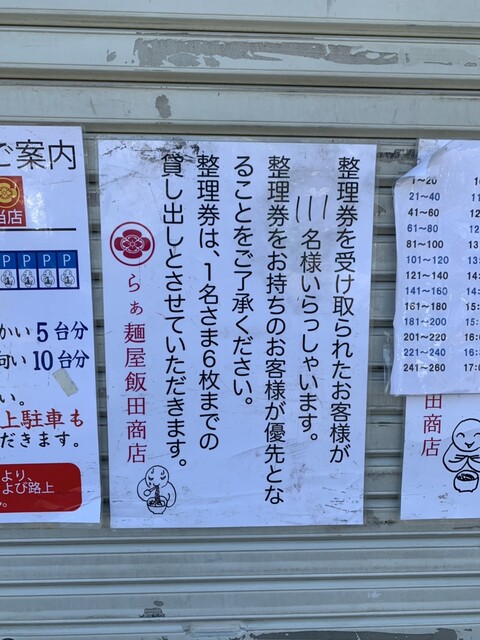 ご案内
当店
P P P P
かい5台分
向い10台分
い。
上駐車も
だきます。
より、
よび路上
整理券を受け取られたお客様が
111名様いらっしゃいます。
整理券をお持ちのお客様が優先とな
ることをご了承ください。
整理券は、1名さま6枚までの
貸し出しとさせていただきます。
らぁ麺屋飯田商店
1~20
21~40
41~60
61~80
81~100
101~120
121~140
141~160
161~180
181~200
201~220
221~240
241~260
10
11
12
12
13:
13:
14:
14:
15:
15:
16:0
16:3
17:0
田商店